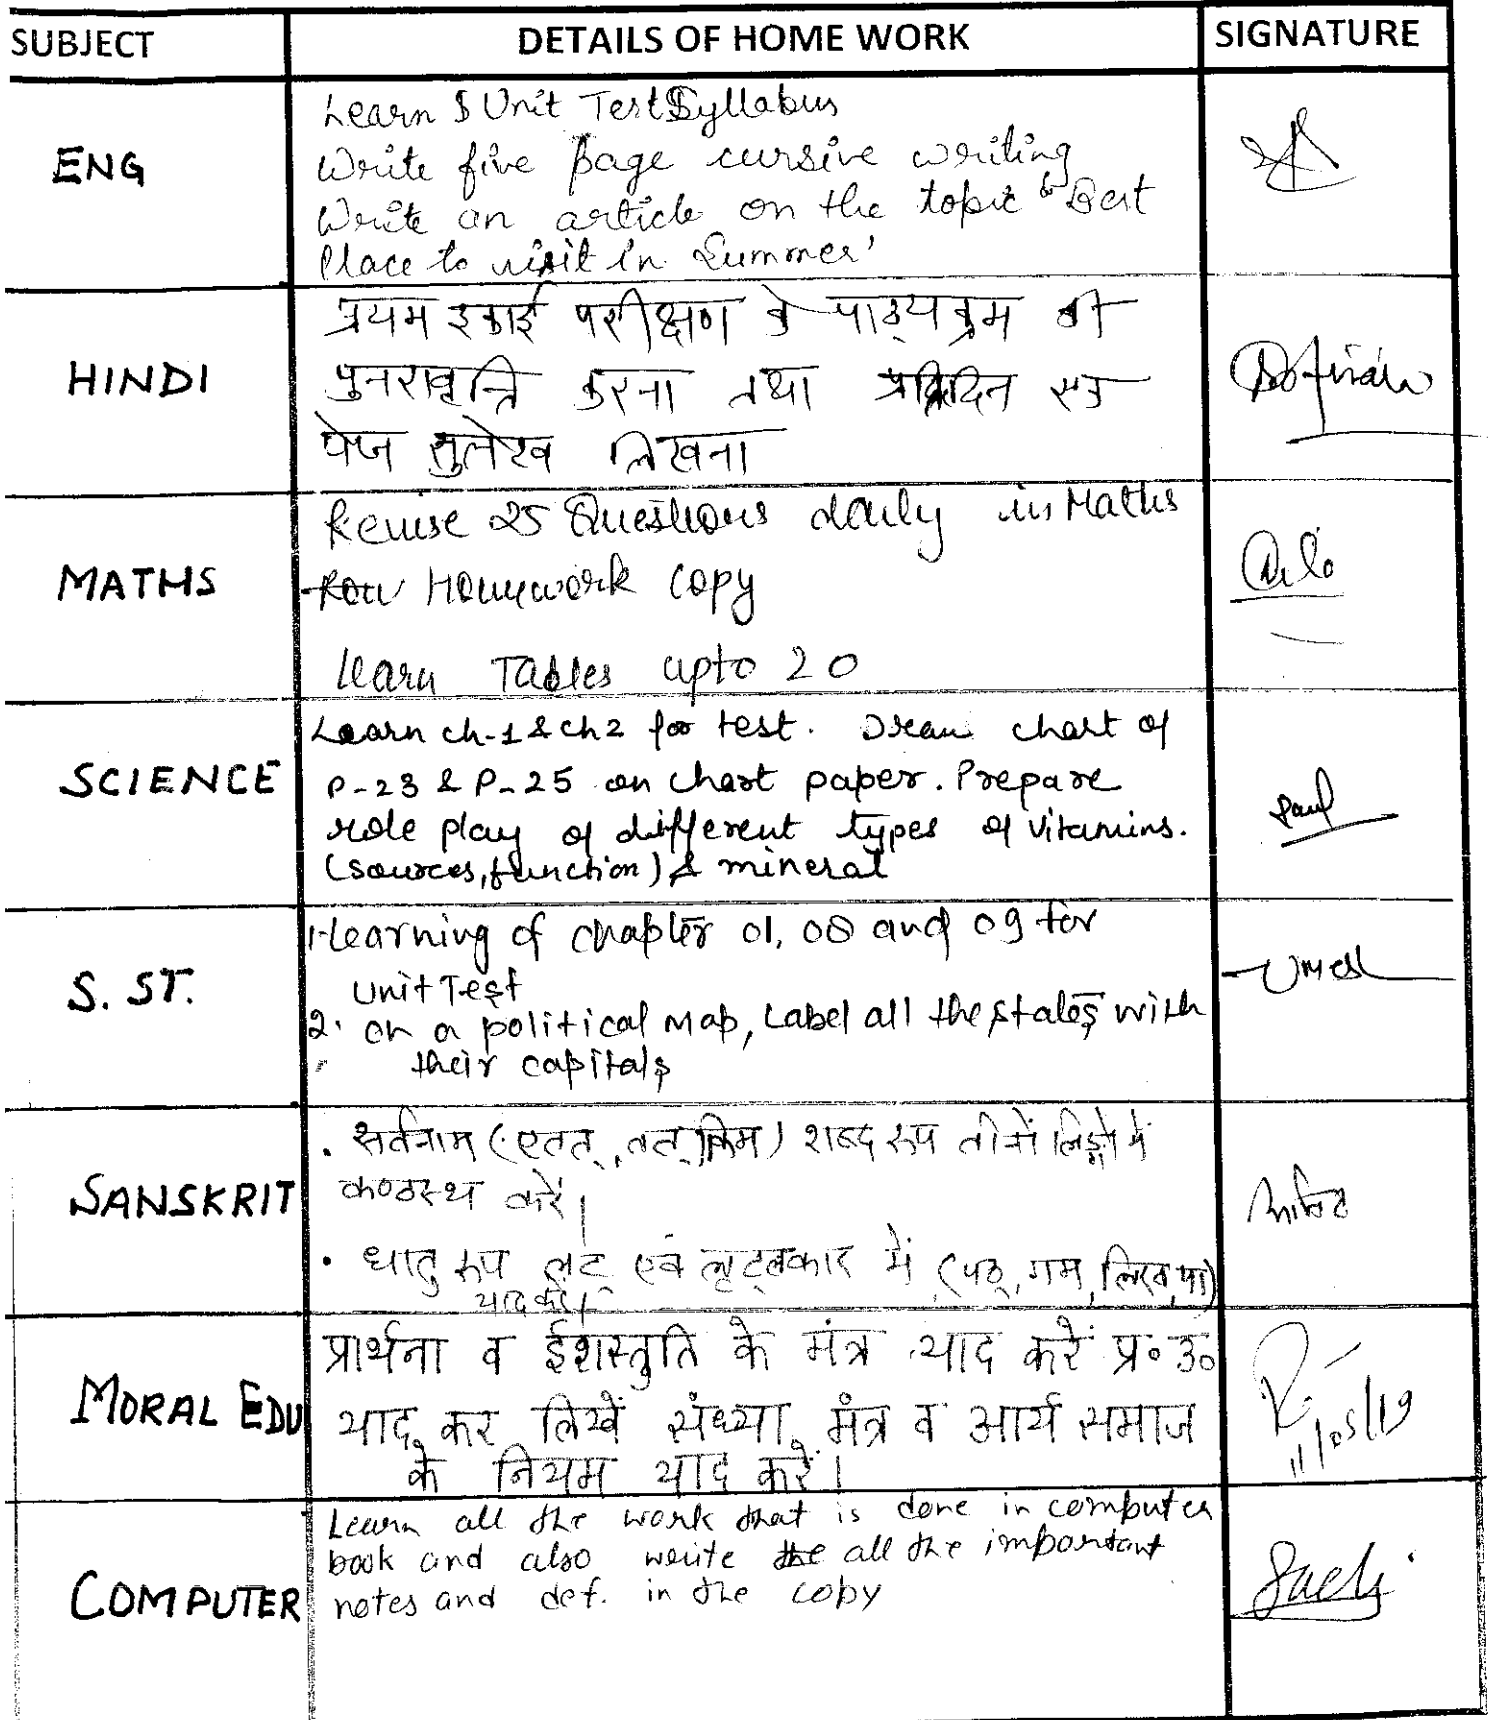 SUBJECT DETAILS OF HOME WORK SIGNATURE
ENG
Learn Unit Test Syllabus
Write five page cursive writing
Write an article on the topic "Best
Place to visit in Summer'
HINDI
प्रथम इकाई परीक्षण के पाठ्यक्रम की
पुनरावृत्ति करना तथा प्रतिदिन एक
पेज सुलेख लिखना
MATHS
Revise 25 Questions daily in Maths
Homework copy
learn Tables upto 20
SCIENCE
Learn ch-1 & ch2 for test. Draw chart of
P-23 & P-25 on chart paper. Prepare
role play of different types of vitamins.
(sources, function) & mineral
S. ST.
1-learning of chapter 01, 08 and 09 for
Unit Test
2. on a political map, Label all the states with
their capitals
Umesh
SANSKRIT
• सर्वनाम (एतत्, तत्, किम) शब्द रूप तीनों लिङ्गों में
कण्ठस्थ करें।
• धातु रूप लट् एवं लृट्लकार में (पठ्, गम, लिख, पा)
याद करें।
MORAL EDU
प्रार्थना व ईशस्तुति के मंत्र याद करें प्र॰ उ॰
याद कर लिखें संध्या मंत्र व आर्य समाज
के नियम याद करें।
11/05/19
COMPUTER
Learn all the work that is done in computer
book and also write the all the important
notes and def. in the copy